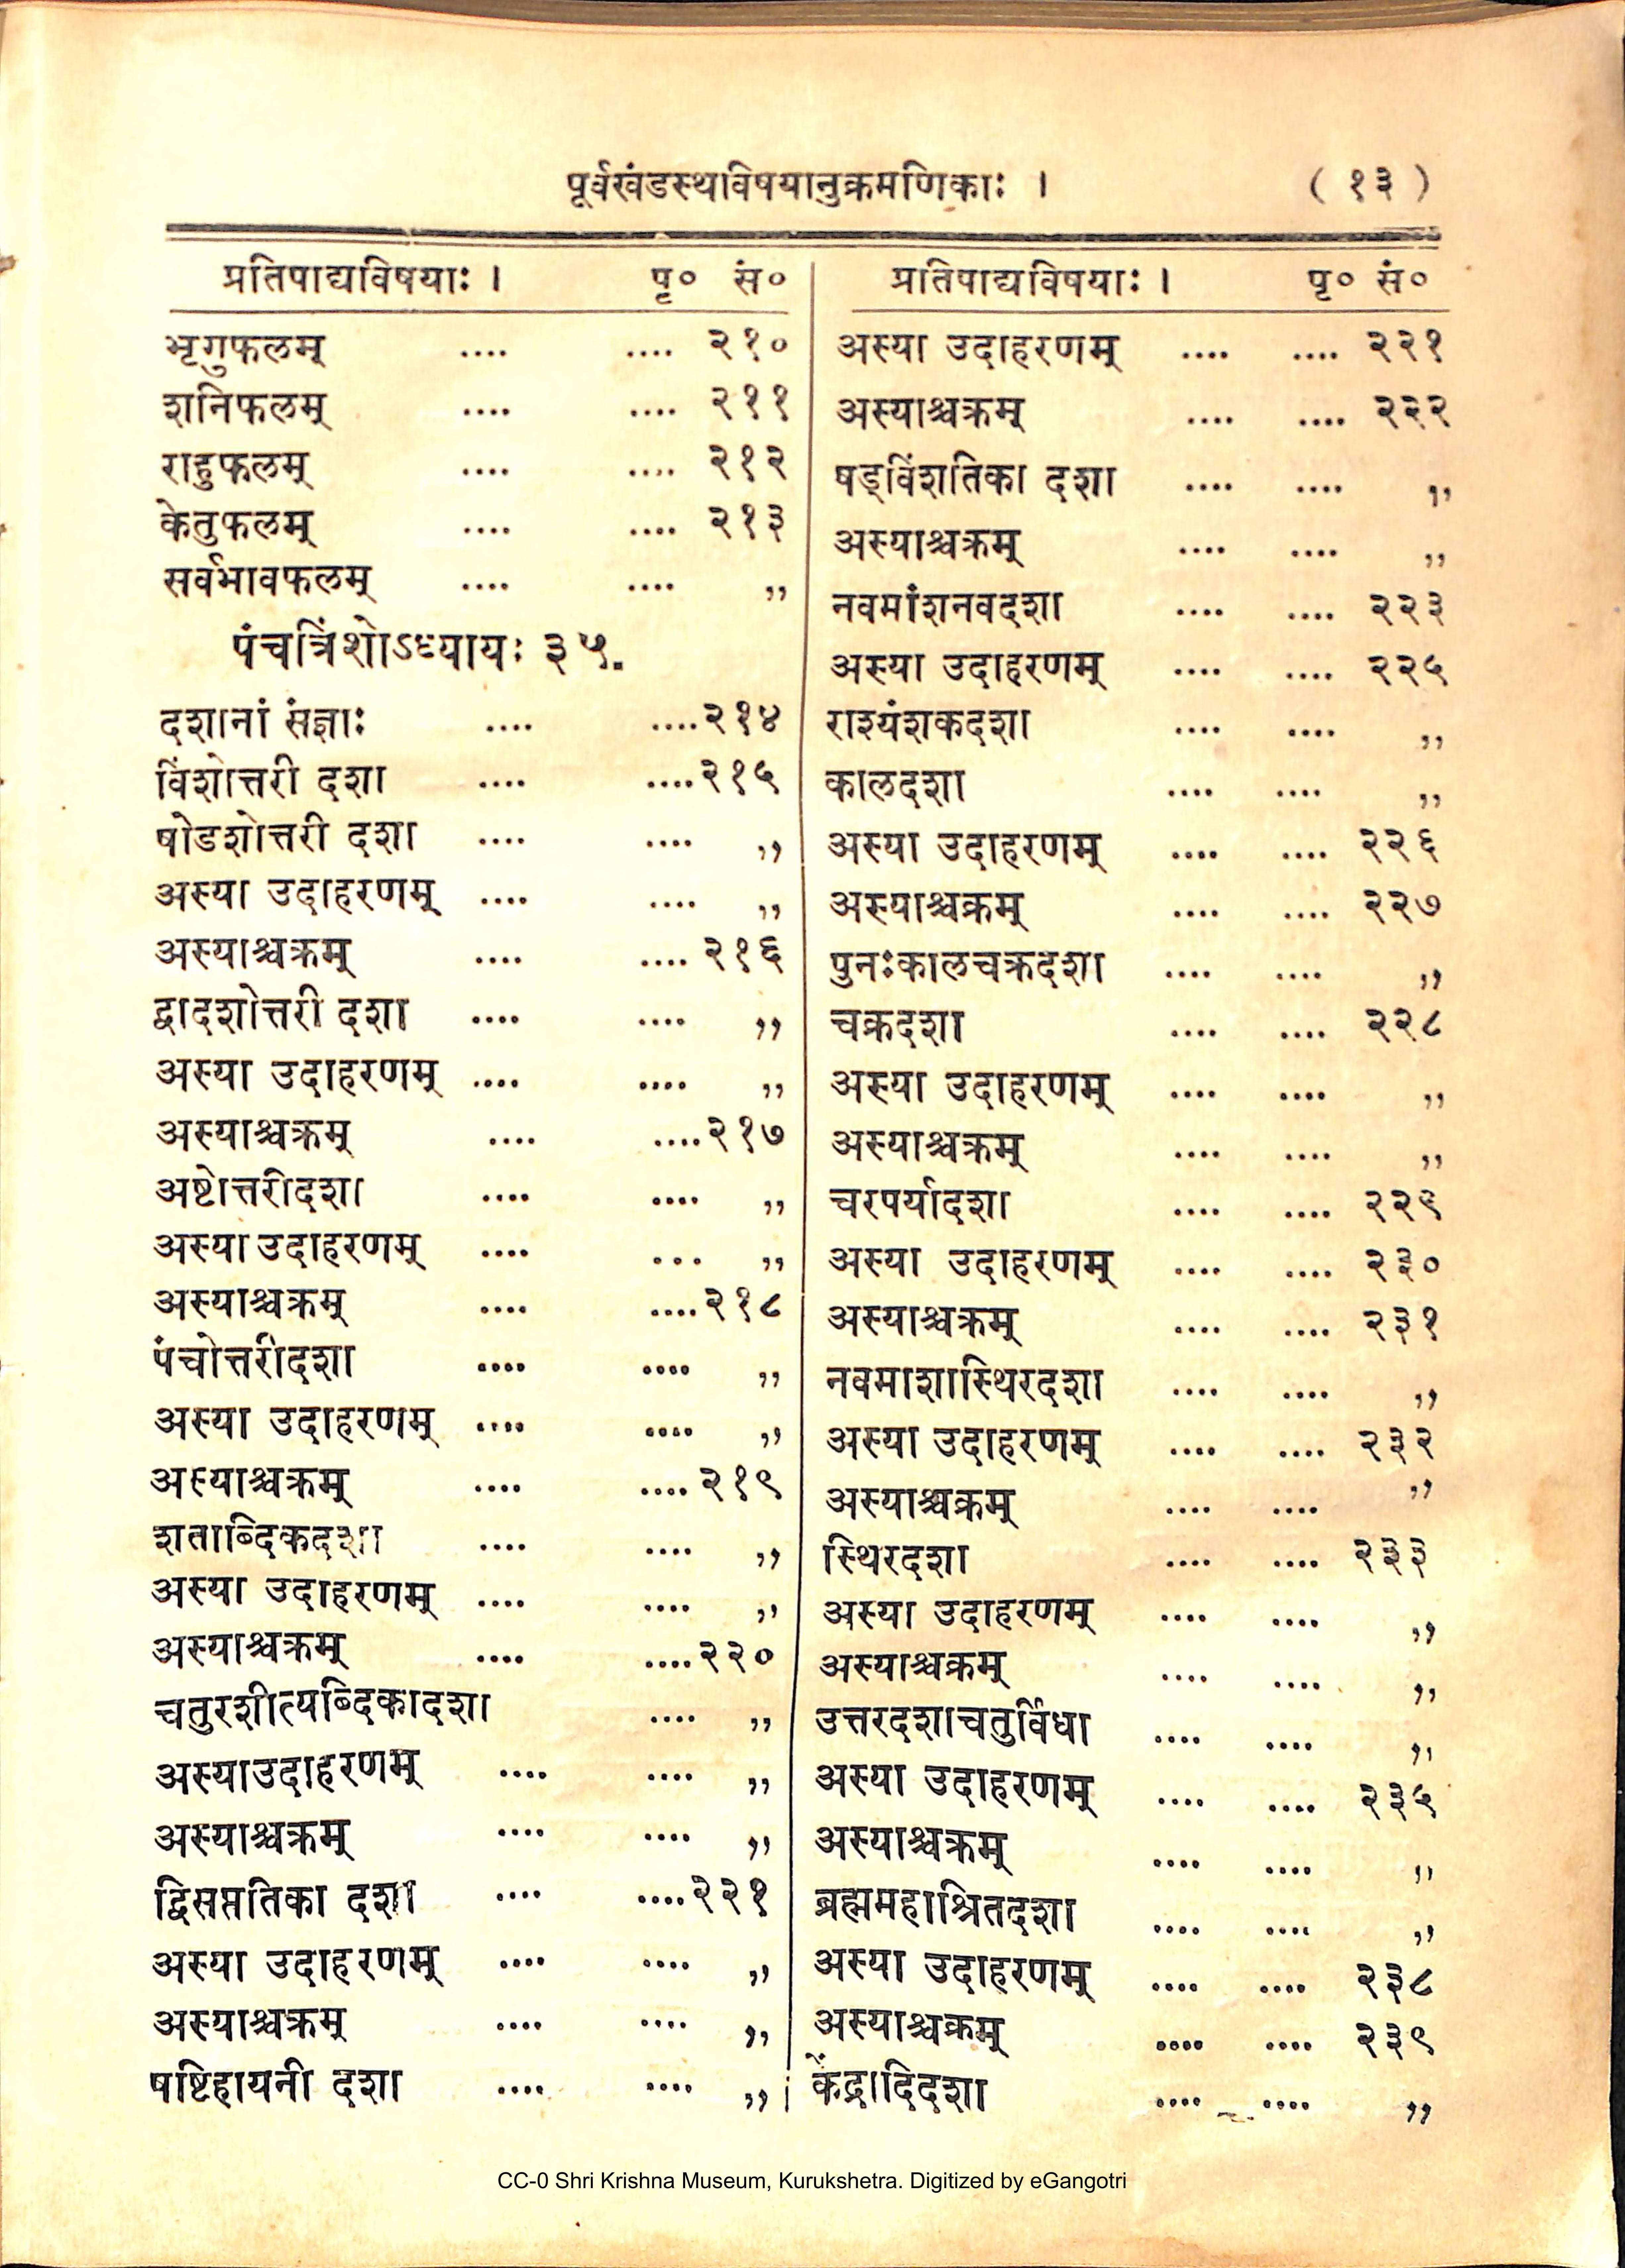 पूर्वखंडस्थविषयानुक्रमणिकाः । ( १३ )
प्रतिपाद्यविषयाः । पृ० सं०
भृगुफलम् .... .... २१०
शनिफलम् .... .... २११
राहुफलम् .... .... २१२
केतुफलम् .... .... २१३
सर्वभावफलम् .... .... ,,
पंचत्रिंशोऽध्यायः ३५.
दशानां संज्ञाः .... ....२१४
विंशोत्तरी दशा .... ....२१५
षोडशोत्तरी दशा .... .... ,,
अस्या उदाहरणम् .... .... ,,
अस्याश्चक्रम् .... .... २१६
द्वादशोत्तरी दशा .... .... ,,
अस्या उदाहरणम् .... .... ,,
अस्याश्चक्रम् .... ....२१७
अष्टोत्तरीदशा .... .... ,,
अस्या उदाहरणम् .... ... ,,
अस्याश्चक्रम् .... ....२१८
पंचोत्तरीदशा .... .... ,,
अस्या उदाहरणम् .... .... ,,
अस्याश्चक्रम् .... .... २१९
शताब्दिकदशा .... .... ,,
अस्या उदाहरणम् .... .... ,,
अस्याश्चक्रम् .... ....२२०
चतुरशीत्यब्दिकादशा .... ,,
अस्याउदाहरणम् .... .... ,,
अस्याश्चक्रम् .... .... ,,
द्विसप्ततिका दशा .... ....२२१
अस्या उदाहरणम् .... .... ,,
अस्याश्चक्रम् .... .... ,,
षष्टिहायनी दशा .... .... ,,
प्रतिपाद्यविषयाः । पृ० सं०
अस्या उदाहरणम् .... .... २२१
अस्याश्चक्रम् .... .... २२२
षड्विंशतिका दशा .... .... ,,
अस्याश्चक्रम् .... .... ,,
नवमांशनवदशा .... .... २२३
अस्या उदाहरणम् .... .... २२५
राश्यंशकदशा .... .... ,,
कालदशा .... .... ,,
अस्या उदाहरणम् .... .... २२६
अस्याश्चक्रम् .... .... २२७
पुनःकालचक्रदशा .... .... ,,
चक्रदशा .... .... २२८
अस्या उदाहरणम् .... .... ,,
अस्याश्चक्रम् .... .... ,,
चरपर्यादशा .... .... २२९
अस्या उदाहरणम् .... .... २३०
अस्याश्चक्रम् .... .... २३१
नवमाशास्थिरदशा .... .... ,,
अस्या उदाहरणम् .... .... २३२
अस्याश्चक्रम् .... .... ,,
स्थिरदशा .... .... २३३
अस्या उदाहरणम् .... .... ,,
अस्याश्चक्रम् .... .... ,,
उत्तरदशाचतुर्विधा .... .... ,,
अस्या उदाहरणम् .... .... २३५
अस्याश्चक्रम् .... .... ,,
ब्रह्ममहाश्रितदशा .... .... ,,
अस्या उदाहरणम् .... .... २३८
अस्याश्चक्रम् .... .... २३९
केंद्रादिदशा .... .... ,,
CC-0 Shri Krishna Museum, Kurukshetra. Digitized by eGangotri